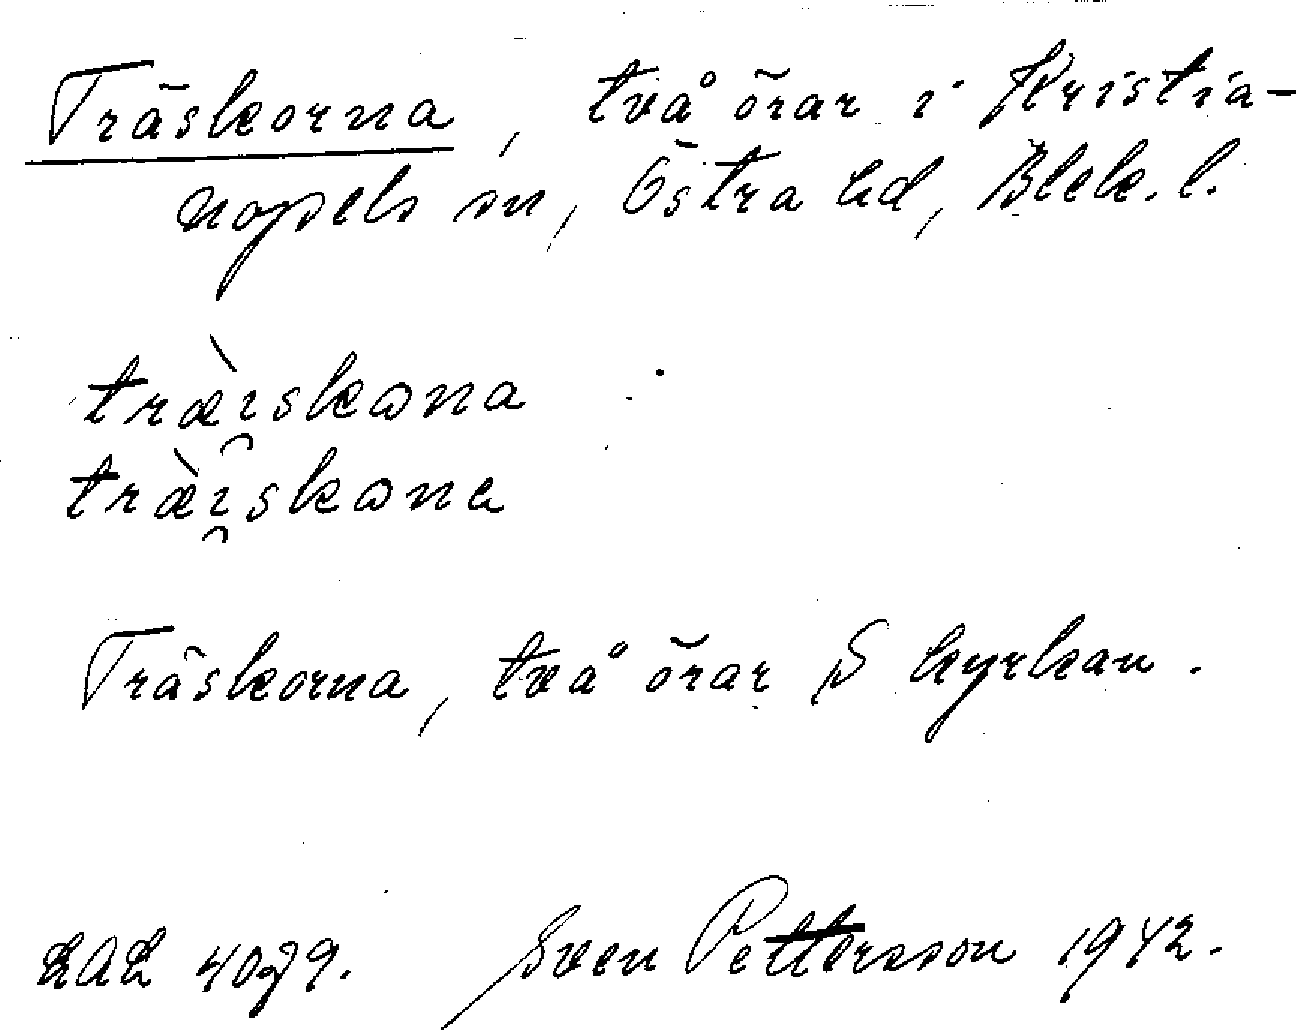 Träskorna, två örar i Kristia-
nopels sn, Östra hd, Blek. l.
træ̀i̯skωna
træ̀i̯skωna
Träskorna, två örar S kyrkan.
LAL 4079. Sven Pettersson 1942.